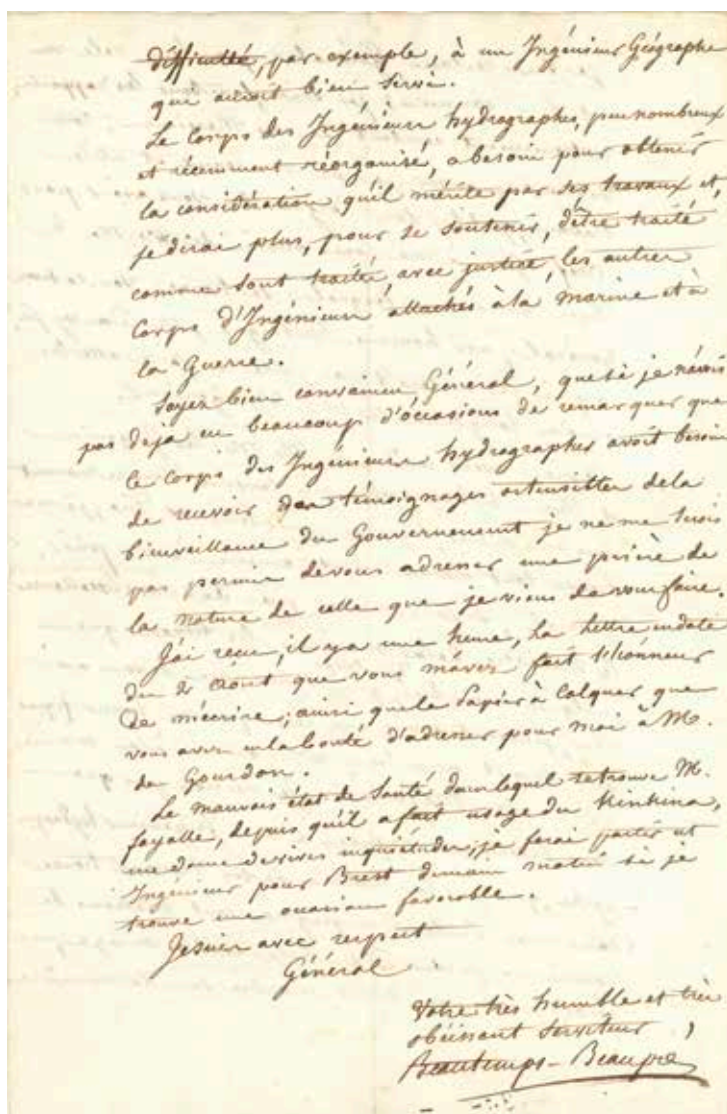 difficulté, par exemple, à un Ingénieur Géographe
qui auroit bien servi.
Le Corps des Ingénieurs hydrographes, peu nombreux
et récemment réorganisé, a besoin pour obtenir
la considération qu'il mérite par ses travaux et,
je dirai plus, pour se soutenir, d'être traité
comme sont traités, avec justice, les autres
Corps d'Ingénieurs attachés à la marine et à
la Guerre.
Soyez bien convaincu Général, que si je n'avois
pas déja eu beaucoup d'occasions de remarquer que
le corps des Ingénieurs hydrographes avoit besoin
de recevoir des témoignages ostensibles de la
bienveillance du Gouvernement je ne me serois
pas permis de vous adresser une prière de
la nature de celle que je viens de vous faire.
J'ai reçu, il y a une heure, la lettre en date
du 2 Août que vous m'avez fait l'honneur
de m'écrire; ainsi que le Papier à Calquer que
vous avez eu la bonté d'adresser pour moi à M.
de Gourdon.
Le mauvais état de Santé dans lequel se trouve M.
fayolle, depuis qu'il a fait usage du Kinkina,
me donne de vives inquiétudes; je ferai partir cet
Ingénieur pour Brest demain matin si je
trouve une occasion favorable.
Je suis avec respect
Général
Votre très humble et très
obéissant Serviteur,
Beautemps-Beaupré